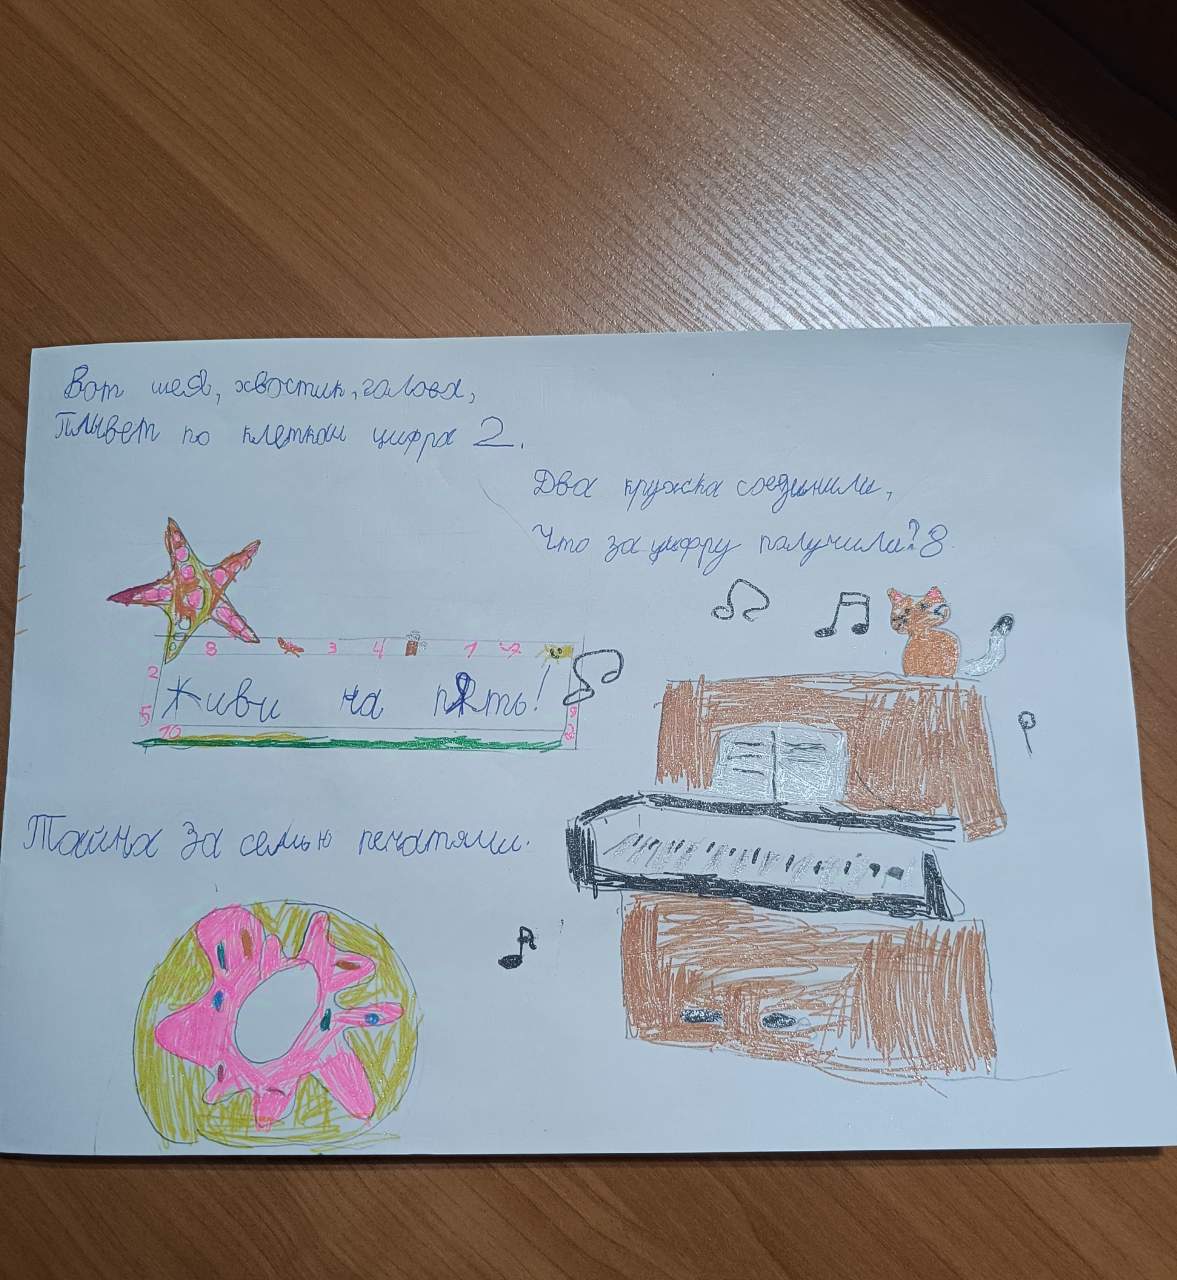 Вот шея, хвостик, голова,
Плывет по клеткам цифра 2.
Два кружка соединили,
Что за цифру получили? 8
8 3 4 1 7
2
Живи на пять!
5
9
8
10
Тайна за семью печатями.